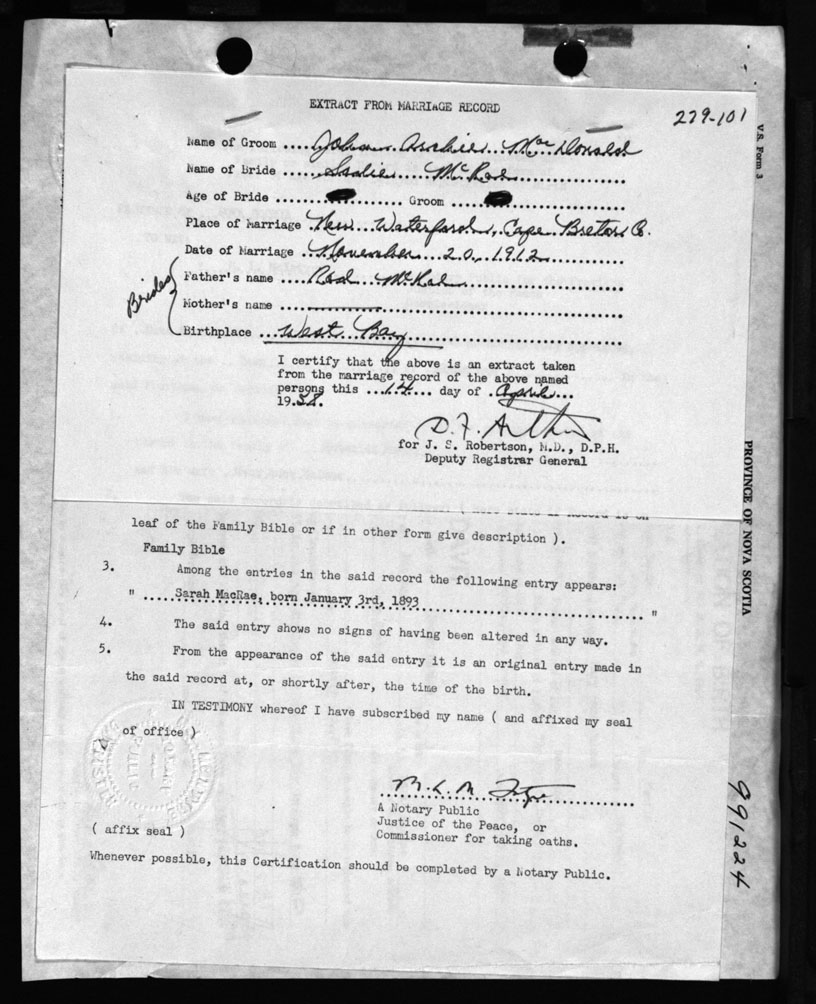 EXTRACT FROM MARRIAGE RECORD
229-101
V.S. Form 3
Name of Groom .... Johan Archie Mac Donald
Name of Bride .... Sadie McRae
Age of Bride ........ Groom ....
Place of Marriage . New Waterford, Cape Breton Co.
Date of Marriage . November 20, 1912
Brides
Father's name .... Rod McRae
Mother's name
Birthplace ... West Bay
I certify that the above is an extract taken
from the marriage record of the above named
persons this ...14... day of . April ...
19.58.
D. F.
for J. S. Robertson, M.D., D.P.H.
Deputy Registrar General
PROVINCE OF NOVA SCOTIA
leaf of the Family Bible or if in other form give description ).
Family Bible
3. Among the entries in the said record the following entry appears:
" ..... Sarah MacRae, born January 3rd, 1893 ..... "
4. The said entry shows no signs of having been altered in any way.
5. From the appearance of the said entry it is an original entry made in
the said record at, or shortly after, the time of the birth.
IN TESTIMONY whereof I have subscribed my name ( and affixed my seal
of office )
A Notary Public
Justice of the Peace, or
Commissioner for taking oaths.
( affix seal )
Whenever possible, this Certification should be completed by a Notary Public.
991224